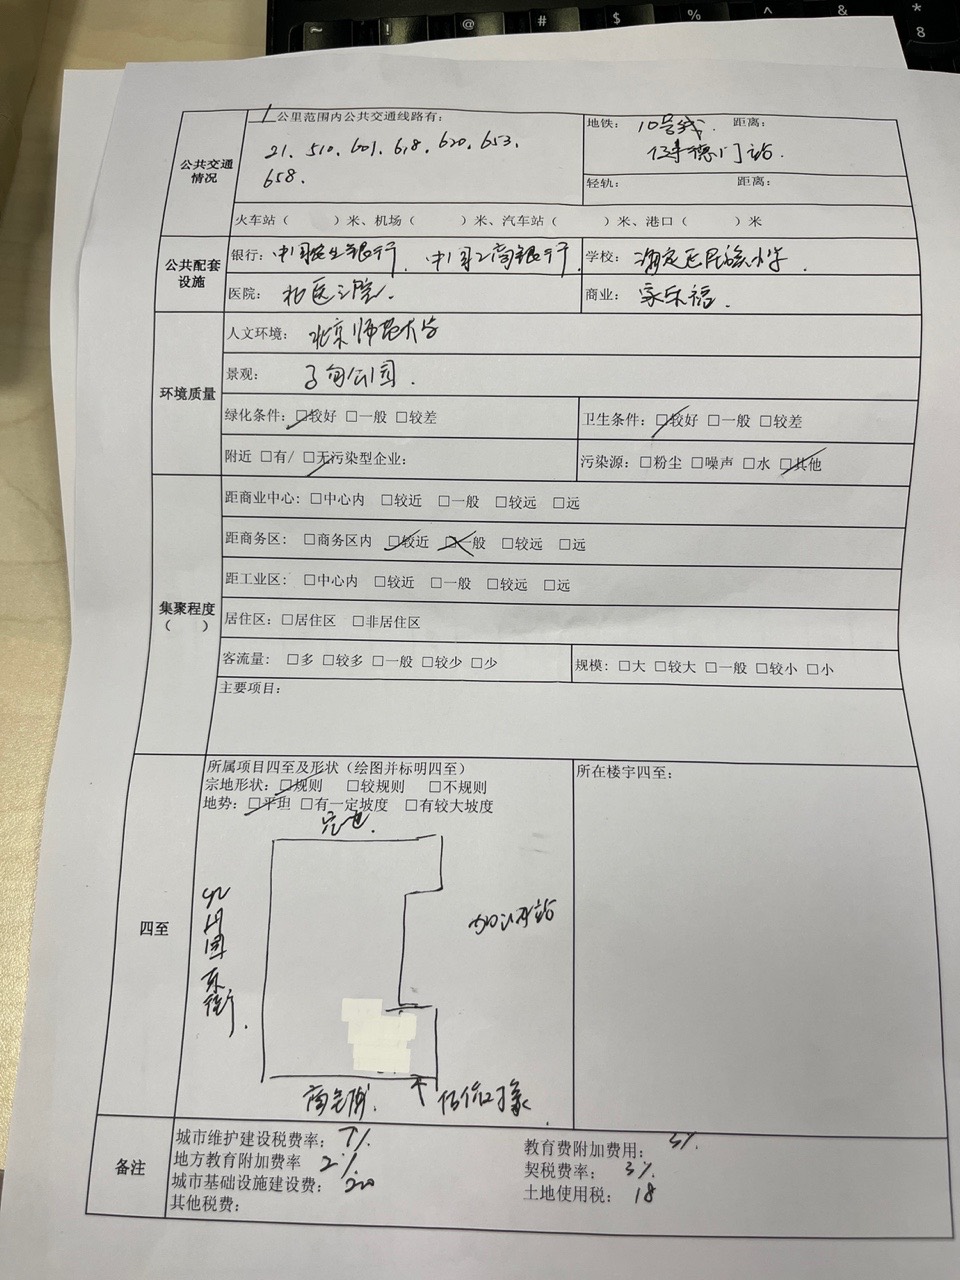 ~ ! @ # $ % ^ & * 8
公共交通情况
1公里范围内公共交通线路有:
21. 510. 601. 618. 620. 653.
658.
地铁: 10号线. 距离:
健德门站.
轻轨: 距离:
火车站( )米、机场( )米、汽车站( )米、港口( )米
公共配套设施
银行: 中国民生银行、中国工商银行. 学校: 海淀区民族小学.
医院: 北医三院. 商业: 家乐福.
环境质量
人文环境: 北京师范大学
景观: 公园.
绿化条件: □较好 □一般 □较差 卫生条件: □较好 □一般 □较差
附近 □有/ □无污染型企业: 污染源: □粉尘 □噪声 □水 □其他
集聚程度
( )
距商业中心: □中心内 □较近 □一般 □较远 □远
距商务区: □商务区内 □较近 □一般 □较远 □远
距工业区: □中心内 □较近 □一般 □较远 □远
居住区: □居住区 □非居住区
客流量: □多 □较多 □一般 □较少 □少 规模: □大 □较大 □一般 □较小 □小
主要项目:
四至
所属项目四至及形状(绘图并标明四至) 所在楼宇四至:
宗地形状: □规则 □较规则 □不规则
地势: □平坦 □有一定坡度 □有较大坡度
园东街.
加油站
估价对象.
备注
城市维护建设税费率: 7%. 教育费附加费用: 3%.
地方教育附加费率 2%. 契税费率: 3%.
城市基础设施建设费: 200 土地使用税: 18
其他税费: